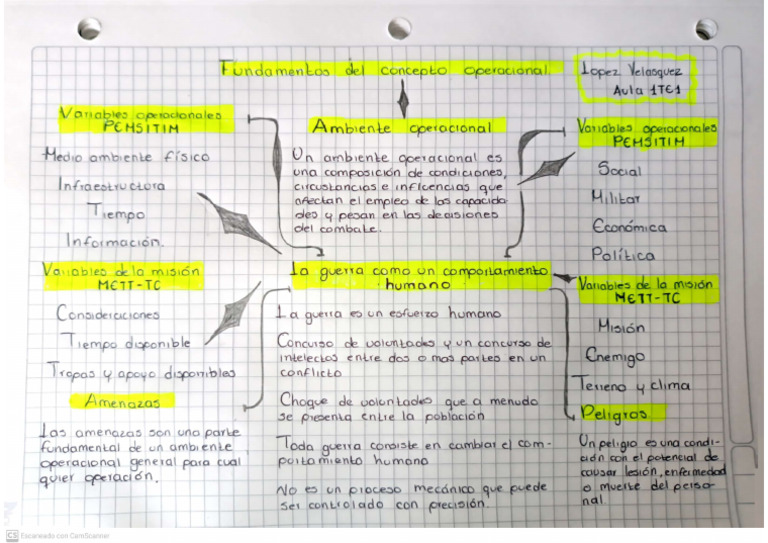 Fundamentos del concepto operacional.
Lopez Velasquez
Aula 1TE1
Variables operacionales
PEMSITIM
Medio ambiente físico
Infraestructura
Tiempo
Información.
Variables de la misión
METT-TC
Consideraciones
Tiempo disponible
Tropas y apoyo disponibles
Amenazas
Las amenazas son una parte
fundamental de un ambiente
operacional general para cual
quier operación.
Ambiente operacional
Un ambiente operacional es
una composición de condiciones,
circustancias e inflcencias que
afectan el empleo de las capacida
des y pesan en las decisiones
del combate.
La guerra como un comportamiento
humano
La guerra es un esfuerzo humano
Concurso de voluntades y un concurso de
intelectos entre dos o mas partes en un
conflicto
Choque de voluntades que a menudo
se presenta entre la población
Toda guerra consiste en cambiar el com-
portamiento humano
No es un proceso mecánico que puede
ser controlado con precisión.
Variables operacionales
PEMSITIM
Social
Militar
Económica
Política
Variables de la misión
METT-TC
Misión
Enemigo
Terreno y clima
Peligros
Un peligro es una condi-
ción con el potencial de
causar lesión, enfermedad
o muerte del perso-
nal
CS Escaneado con CamScanner